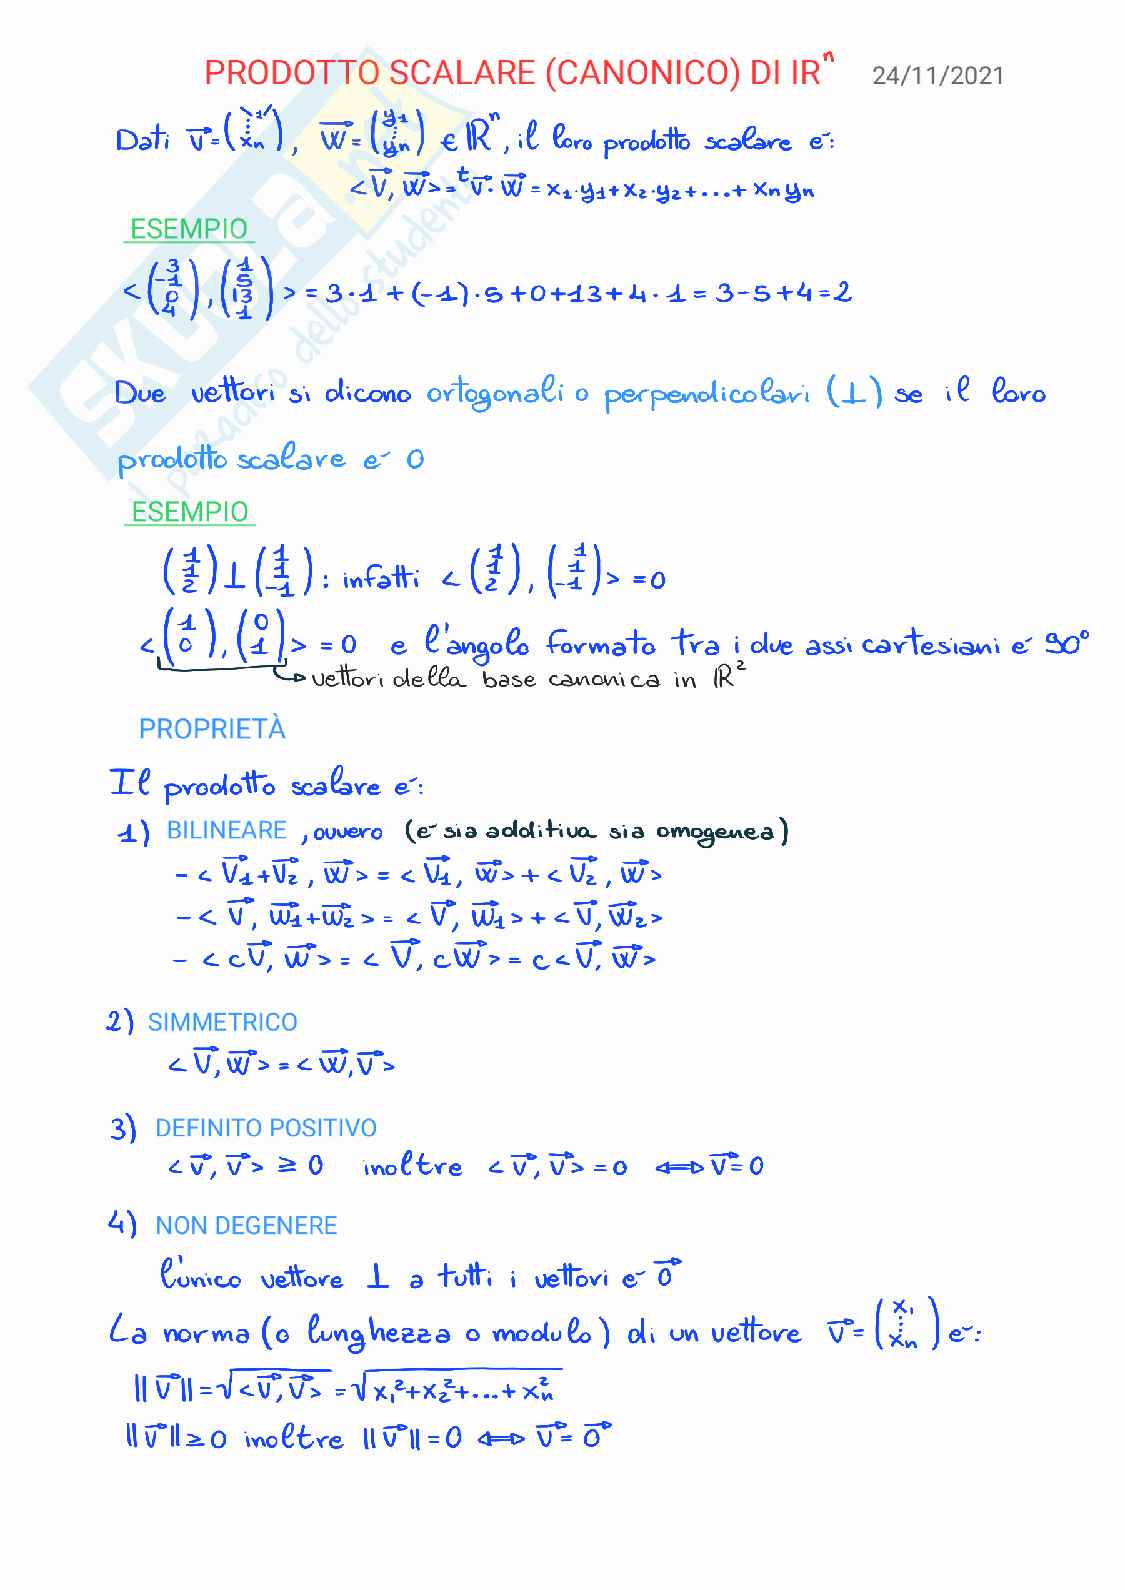 PRODOTTO SCALARE (CANONICO) DI ℝⁿ 24/11/2021
Dati v⃗=(x₁ ⋮ xₙ), w⃗=(y₁ ⋮ yₙ) ∈ ℝⁿ, il loro prodotto scalare e´:
<v⃗, w⃗>=ᵗv⃗·w⃗=x₁·y₁+x₂·y₂+...+xₙyₙ
ESEMPIO
<(3 -1 0 4),(1 5 13 1)> = 3·1+(-1)·5+0+13+4·1=3-5+4=2
Due vettori si dicono ortogonali o perpendicolari (⊥) se il loro
prodotto scalare e´ 0
ESEMPIO
(1 1 2)⊥(1 1 -1): infatti <(1 1 2),(1 1 -1)> =0
<(1 0),(0 1)> =0 e l'angolo formato tra i due assi cartesiani e´ 90°
vettori della base canonica in ℝ²
PROPRIETÀ
Il prodotto scalare e´:
1) BILINEARE, ovvero (e´ sia additiva sia omogenea)
- <v⃗₁+v⃗₂, w⃗> = <v⃗₁, w⃗>+<v⃗₂, w⃗>
- <v⃗, w⃗₁+w⃗₂> = <v⃗, w⃗₁>+<v⃗, w⃗₂>
- <cv⃗, w⃗> = <v⃗, cw⃗> = c<v⃗, w⃗>
2) SIMMETRICO
<v⃗, w⃗> = <w⃗, v⃗>
3) DEFINITO POSITIVO
<v⃗, v⃗> ≥ 0 inoltre <v⃗, v⃗> =0 ⟺ v⃗=0
4) NON DEGENERE
l'unico vettore ⊥ a tutti i vettori e´ 0⃗
La norma (o lunghezza o modulo) di un vettore v⃗=(x₁ ⋮ xₙ) e´:
||v⃗||=√<v⃗, v⃗> =√x₁²+x₂²+...+xₙ²
||v⃗||≥0 inoltre ||v⃗||=0 ⟺ v⃗=0⃗
SKUOLA.net
il paradiso dello studente